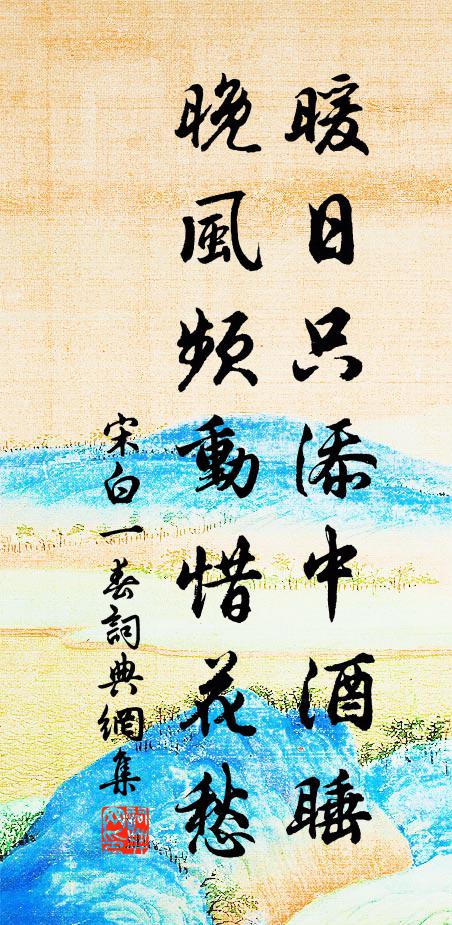 暖日只添中酒睡
晚風頻動惜花愁
宋白一春詞典網集